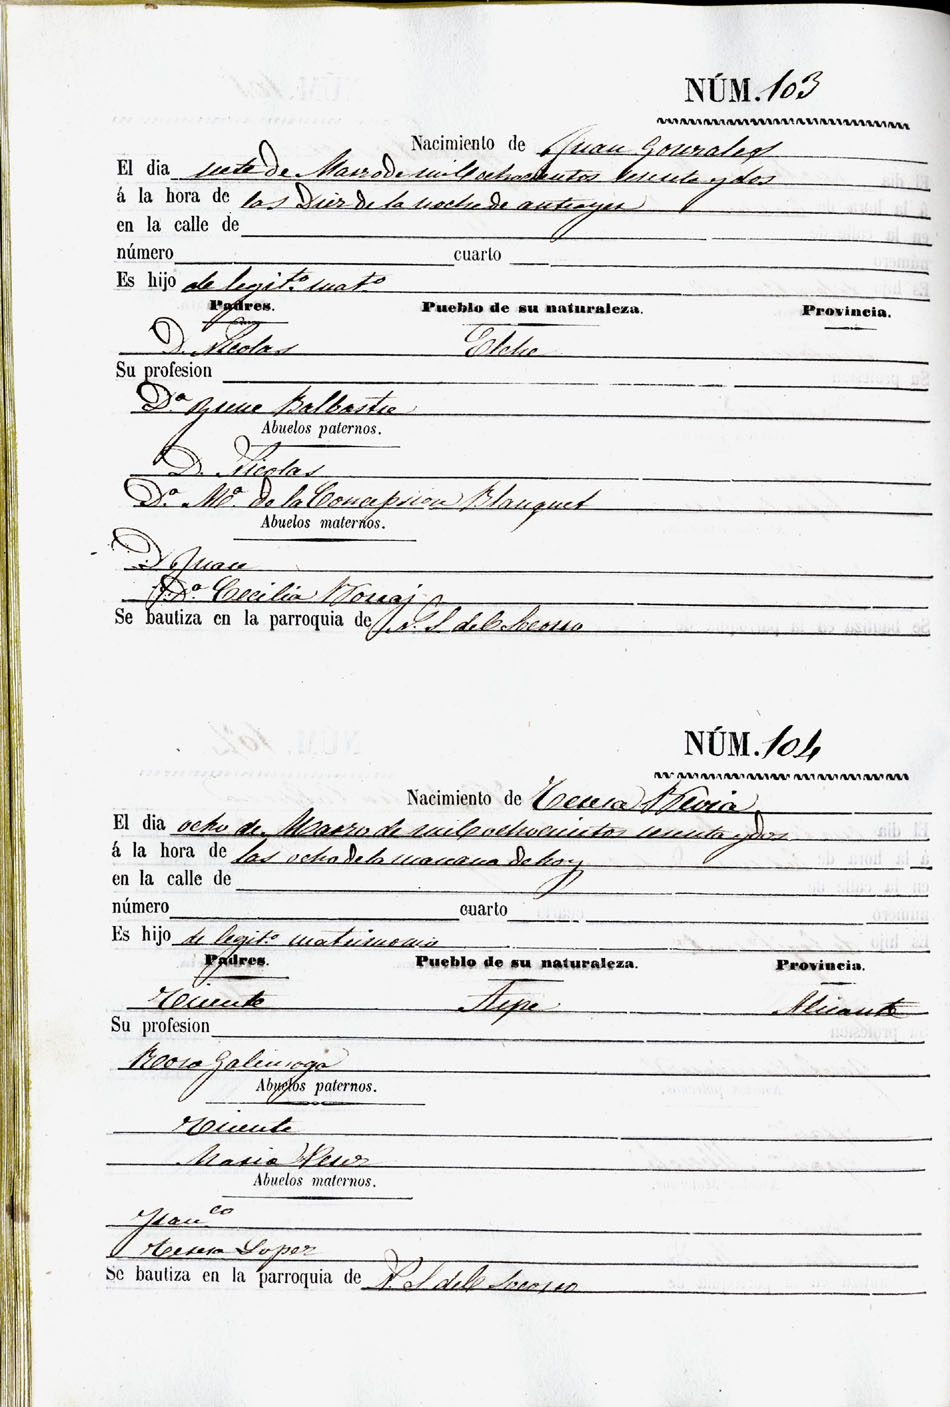 NÚM. 103
Nacimiento de Juan Gonzalez
El dia siete de Marzo de mil ochocientos sesenta y dos
á la hora de las Diez de la noche de antiayer
en la calle de
número cuarto
Es hijo de legit.º mat.º
Padres. Pueblo de su naturaleza. Provincia.
D. Nicolas Elche
Su profesion
D.ª Irene Balbastre
Abuelos paternos.
D. Nicolas
D.ª M.ª de la Concepcion Blanquet
Abuelos maternos.
D. Juan
D.ª Cecilia
Se bautiza en la parroquia de N. S. del Socorro
NÚM. 104
Nacimiento de Teresa
El dia ocho de Marzo de mil ochocientos sesenta y dos
á la hora de las ocho de la manana de hoy
en la calle de
número cuarto
Es hijo de legit.º matrimonio
Padres. Pueblo de su naturaleza. Provincia.
Vicente Alicante
Su profesion
Rosa Galiensoga
Abuelos paternos.
Vicente
Maria Perez
Abuelos maternos.
Fran.co
Teresa Lopez
Se bautiza en la parroquia de N. S. del Socorro